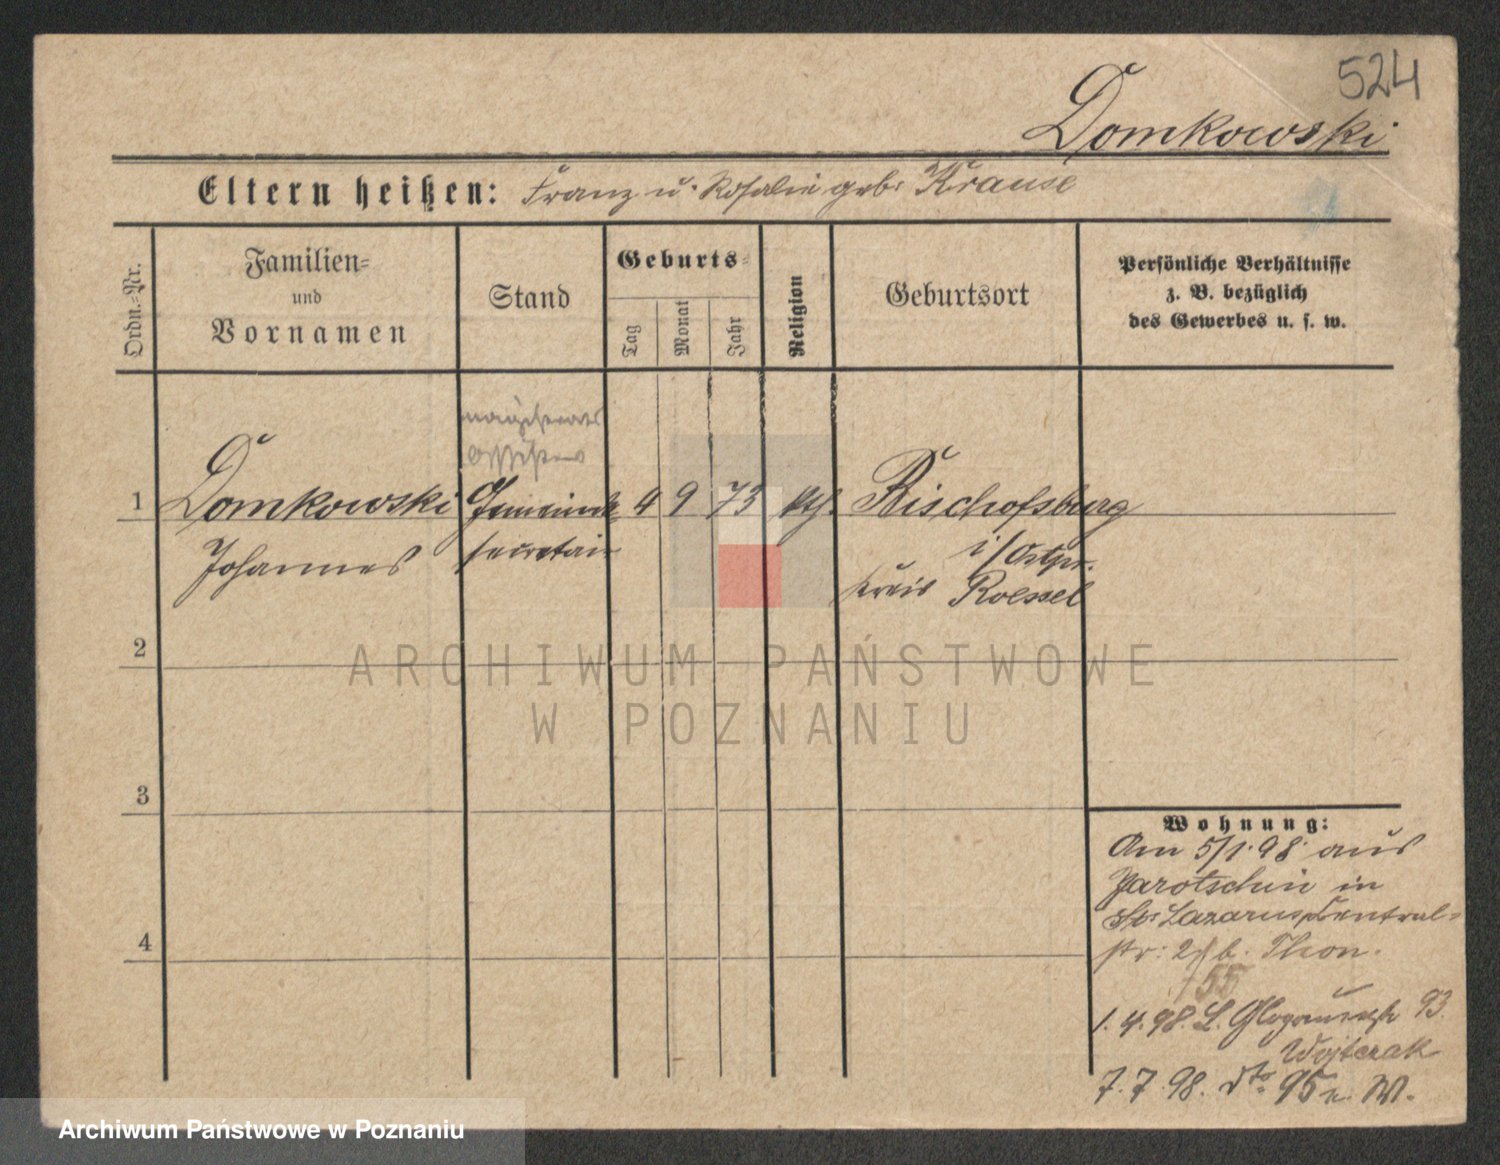 524
Domkowski
Eltern heißen: Franz u. Rosalie geb. Krause
Ordn.=Nr.
Familien=
und
Vornamen
Stand
Geburts=
Tag
Monat
Jahr
Religion
Geburtsort
Persönliche Verhältnisse
z. B. bezüglich
des Gewerbes u. s. w.
magistrats
assistent
1 Domkowski Gemeinde 4 9 73 kth. Bischofsburg
Johannes secretair i/Ostpr.
Kreis Roessel
2
3
4
Wohnung:
Am 5/1.98 aus
Jarotschin in
St. Lazarus, Central=
str: 2 b. Thon.
55
1.4.98. L. Glogauerstr 93.
Wojtczak
7.7.98. dto 95 b. W.
ARCHIWUM PAŃSTWOWE
W POZNANIU
Archiwum Państwowe w Poznaniu